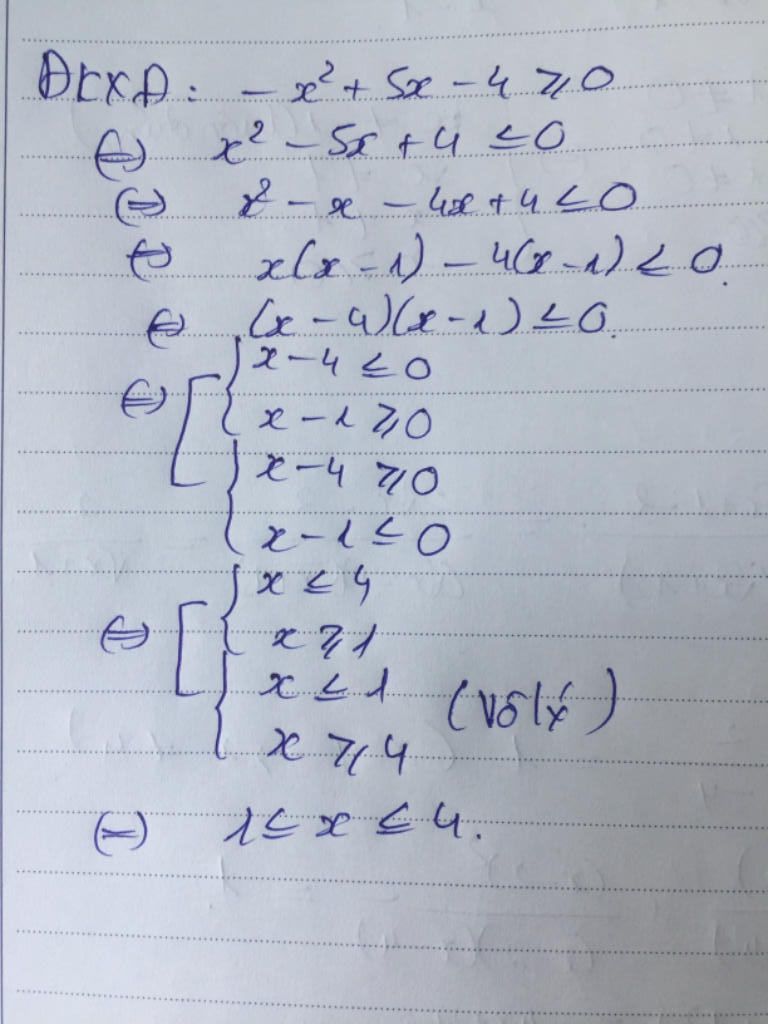 ĐKXĐ: -x² + 5x - 4 ⩾ 0
⇔ x² - 5x + 4 ≤ 0
⇔ x² - x - 4x + 4 ≤ 0
⇔ x(x - 1) - 4(x - 1) ≤ 0.
⇔ (x - 4)(x - 1) ≤ 0.
⇔ [ { x - 4 ≤ 0
x - 1 ⩾ 0
{ x - 4 ⩾ 0
x - 1 ≤ 0
⇔ [ { x ≤ 4
x ⩾ 1
{ x ≤ 1 (Vô lý)
x ⩾ 4
⇔ 1 ≤ x ≤ 4.